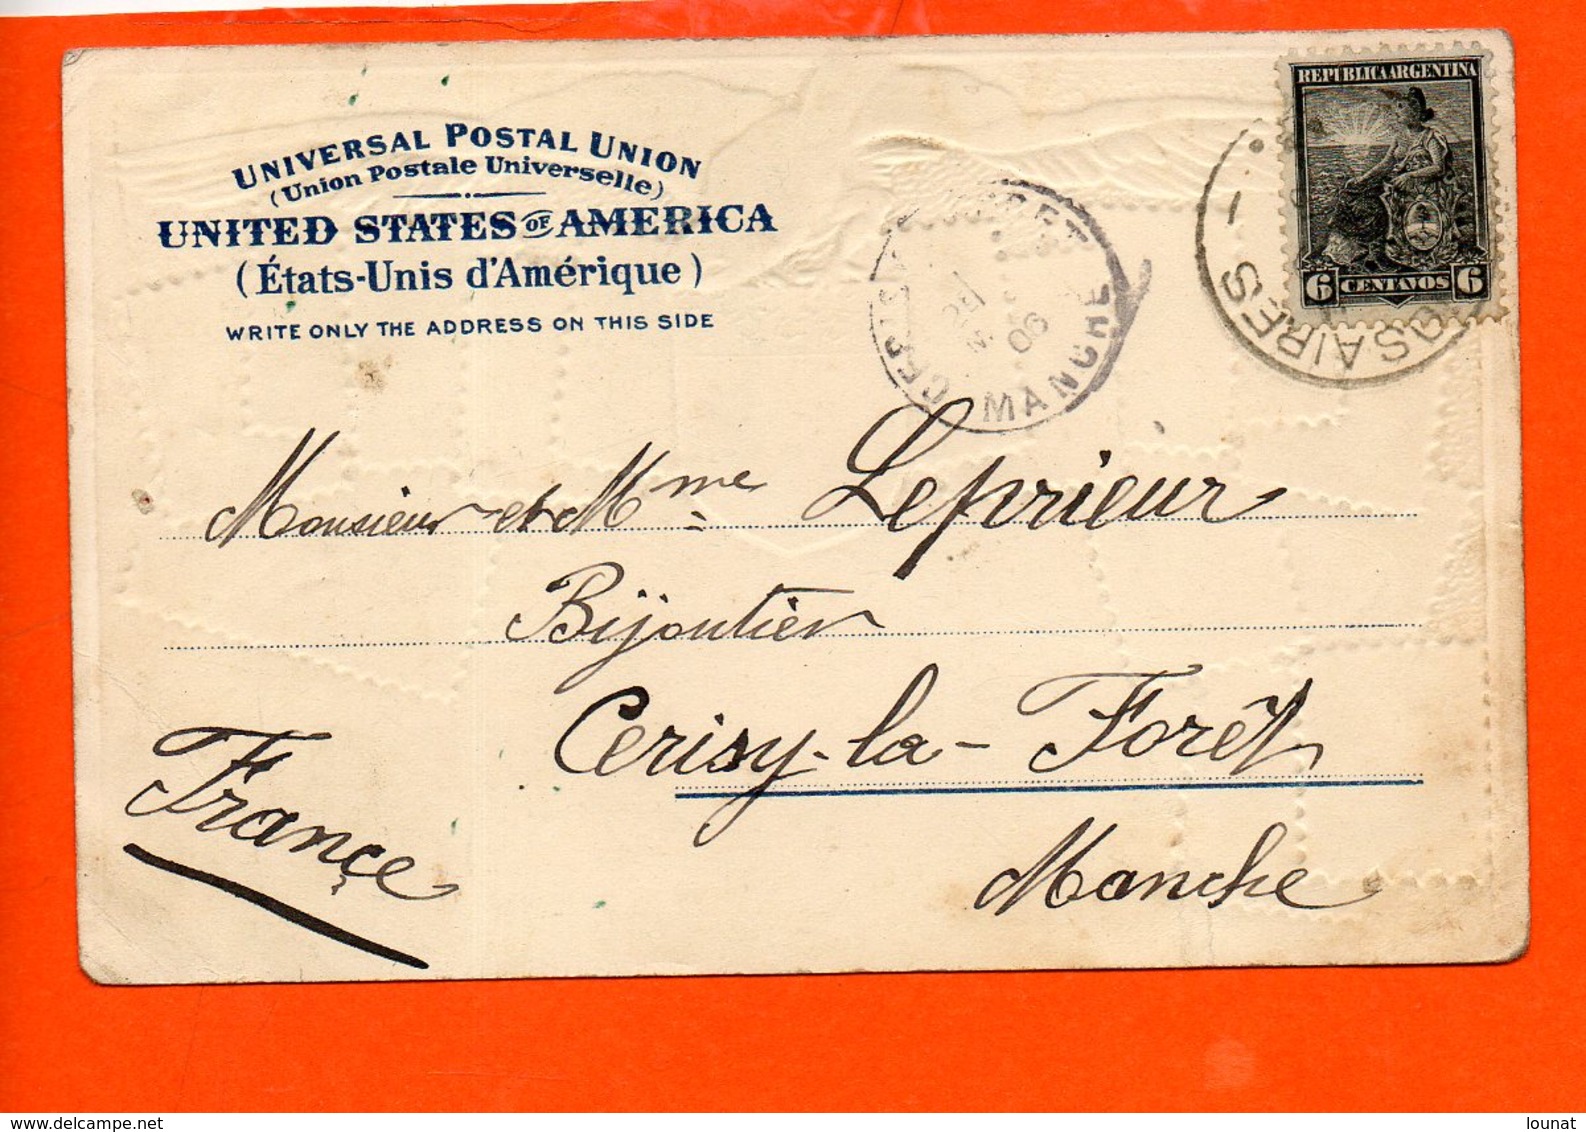 UNIVERSAL POSTAL UNION
(Union Postale Universelle)
UNITED STATES OF AMERICA
(États-Unis d'Amérique)
WRITE ONLY THE ADDRESS ON THIS SIDE
REPUBLICA ARGENTINA
6 CENTAVOS 6
AIRES
MANCHE
06
Monsieur et Mme Leprieur
Bijoutier
Cerisy-la-Forêt
Manche
France
www.delcampe.net
lounat